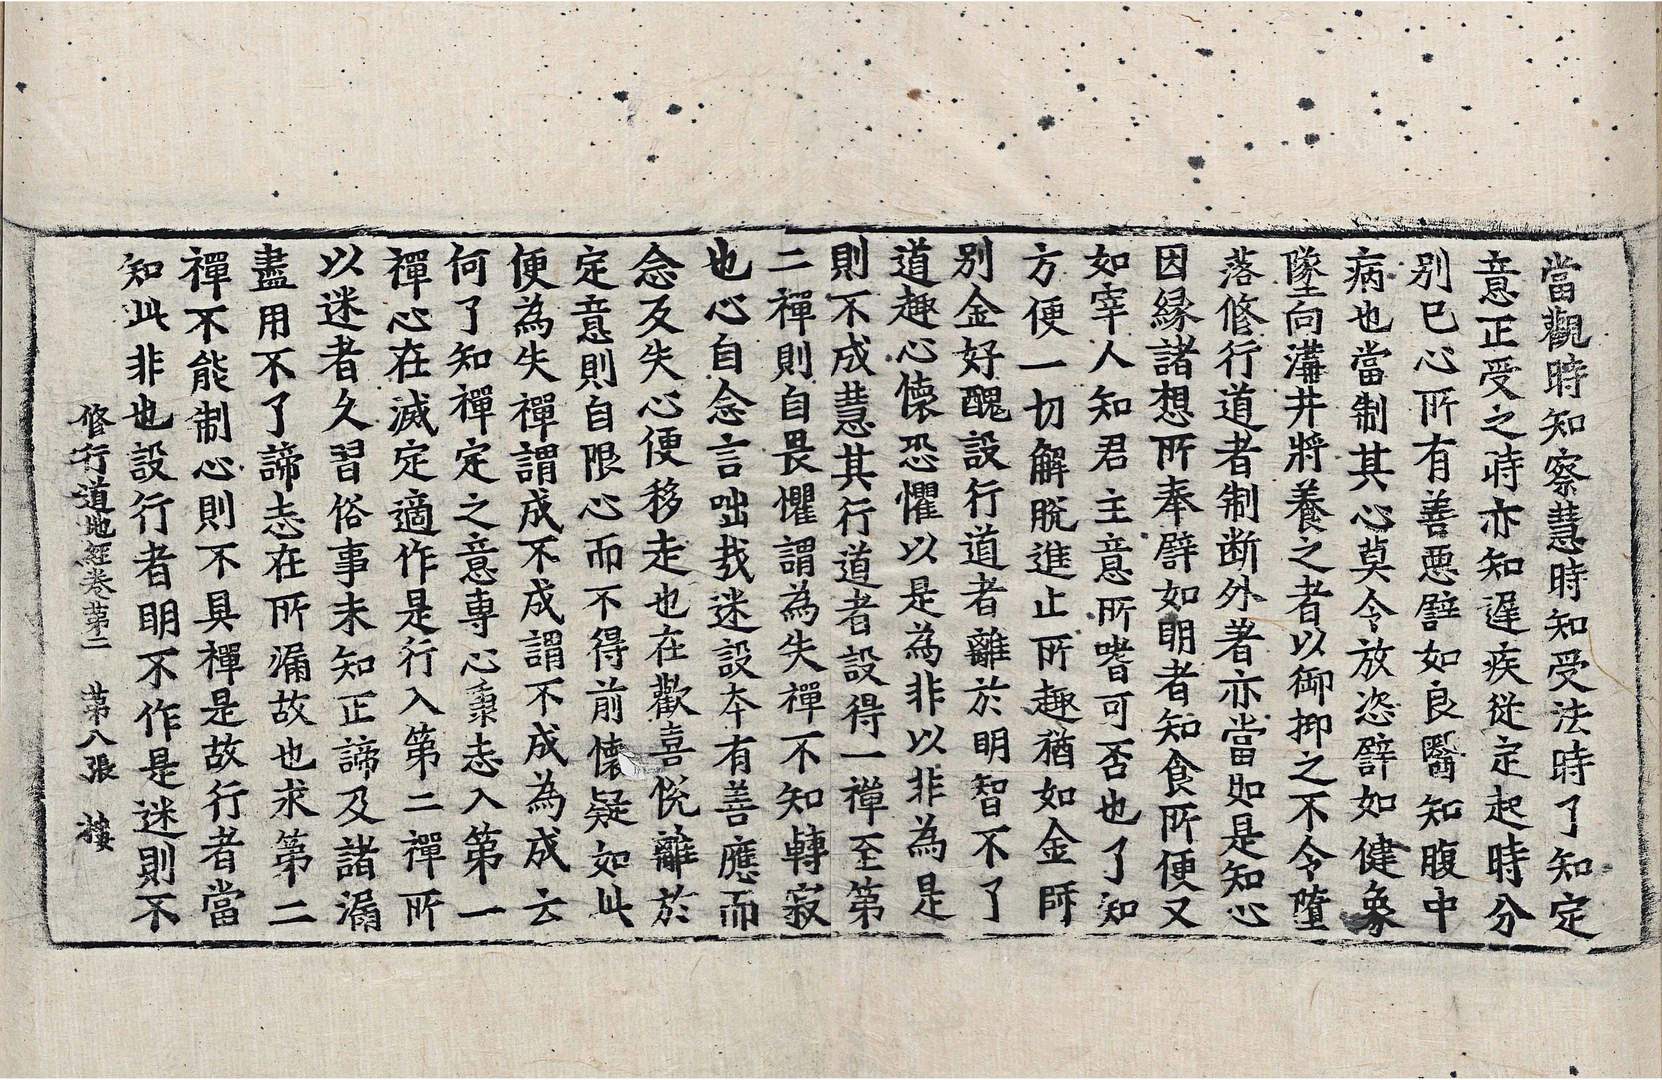 當觀時知察慧時知受法時了知定
意正受之時亦知遲疾從定起時分
别已心所有善惡譬如良醫知腹中
病也當制其心莫令放恣譬如健象
墜向溝井將養之者以御抑之不令墮
落修行道者制断外著亦當如是知心
因緣諸想所奉譬如明者知食所便又
如宰人知君主意所嗜可否也了知
方便一切解脫進止所趣猶如金師
别金好醜設行道者離於明智不了
道趣心懷恐懼以是為非以非為是
則不成慧其行道者設得一禪至第
二禪則自畏懼謂為失禪不知轉寂
也心自念言咄哉迷設本有善應而
念反失心便移走也在歡喜悅離於
定意則自限心而不得前懷疑如此
便為失禪謂成不成謂不成為成云
何了知禪定之意專心秉志入第一
禪心在滅定適作是行入第二禪所
以迷者久習俗事未知正諦及諸漏
盡用不了諦志在所漏故也求第二
禪不能制心則不具禪是故行者當
知此非也設行者明不作是迷則不
修行道地經卷第二 第八張 樓